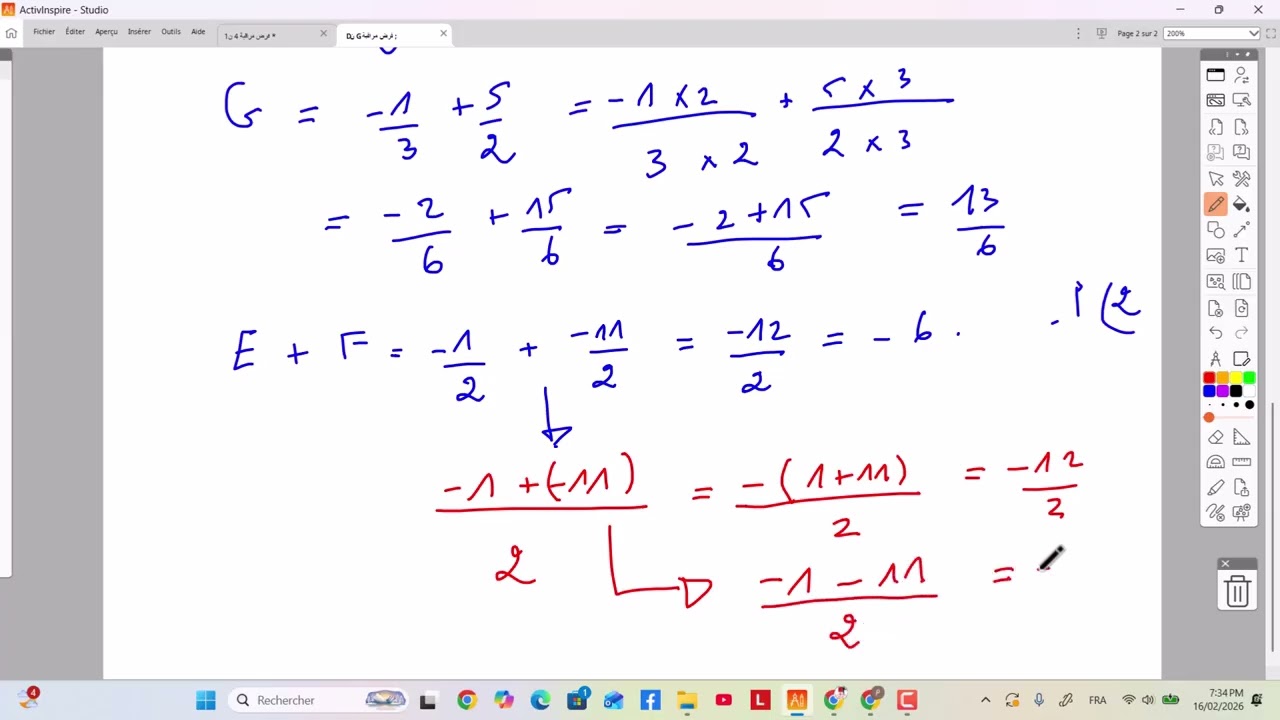 ActivInspire - Studio
Fichier Éditer Aperçu Insérer Outils Aide
فرض مراقبة 4 ن1 *
فرض مراقبة G نD ;
Page 2 sur 2 200%
G = -1/3 + 5/2 = -1×2/3×2 + 5×3/2×3
= -2/6 + 15/6 = -2+15/6 = 13/6
E + F = -1/2 + -11/2 = -12/2 = -6.
(2
-1+(-11)/2 = -(1+11)/2 = -12/2
-1-11/2 =
Rechercher
FRA
7:34 PM
16/02/2026